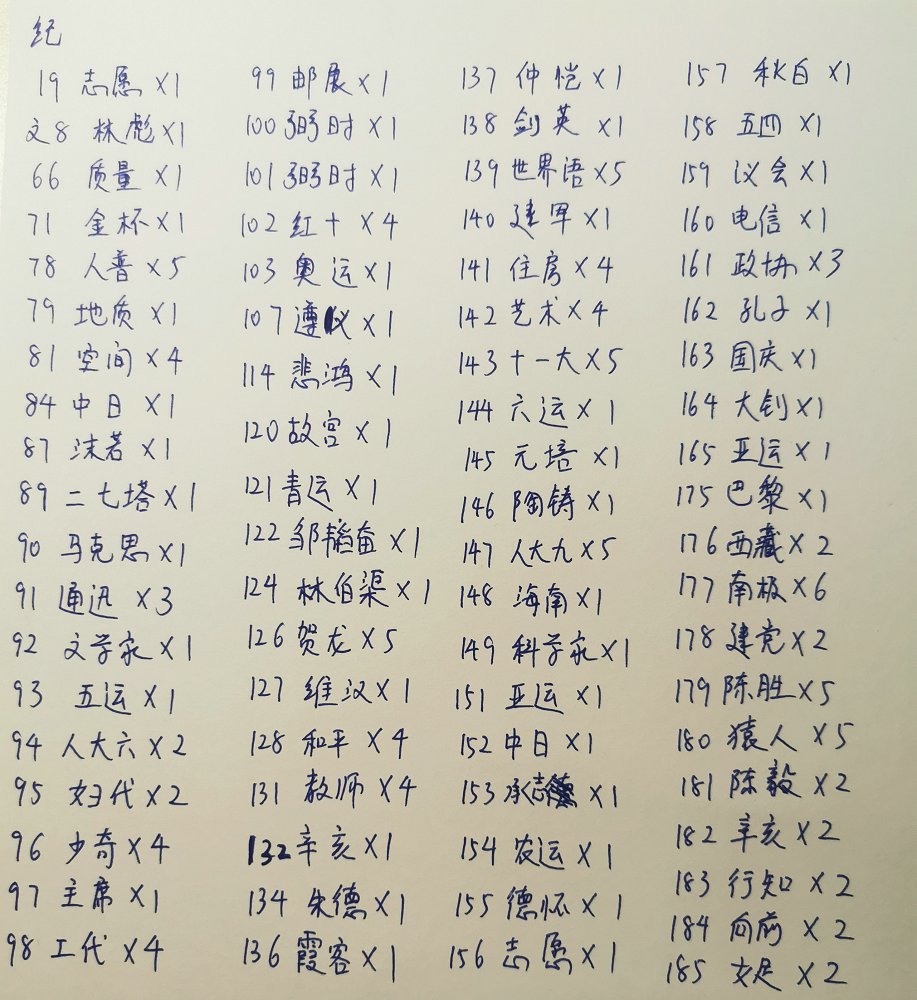 纪
19 志愿 ×1
文8 林彪 ×1
66 质量 ×1
71 金杯 ×1
78 人普 ×5
79 地质 ×1
81 空间 ×4
84 中日 ×1
87 沫若 ×1
89 二七塔 ×1
90 马克思 ×1
91 通迅 ×3
92 文学家 ×1
93 五运 ×1
94 人大六 ×2
95 妇代 ×2
96 少奇 ×4
97 主席 ×1
98 工代 ×4
99 邮展 ×1
100 弼时 ×1
101 弼时 ×1
102 红十 ×4
103 奥运 ×1
107 遵义 ×1
114 悲鸿 ×1
120 故宫 ×1
121 青运 ×1
122 邹韬奋 ×1
124 林伯渠 ×1
126 贺龙 ×5
127 维汉 ×1
128 和平 ×4
131 教师 ×4
132 辛亥 ×1
134 朱德 ×1
136 霞客 ×1
137 仲恺 ×1
138 剑英 ×1
139 世界语 ×5
140 建军 ×1
141 住房 ×4
142 艺术 ×4
143 十一大 ×5
144 六运 ×1
145 元培 ×1
146 陶铸 ×1
147 人大九 ×5
148 海南 ×1
149 科学家 ×1
151 亚运 ×1
152 中日 ×1
153 承志 ×1
154 农运 ×1
155 德怀 ×1
156 志愿 ×1
157 秋白 ×1
158 五四 ×1
159 议会 ×1
160 电信 ×1
161 政协 ×3
162 孔子 ×1
163 国庆 ×1
164 大钊 ×1
165 亚运 ×1
175 巴黎 ×1
176 西藏 ×2
177 南极 ×6
178 建党 ×2
179 陈胜 ×5
180 猿人 ×5
181 陈毅 ×2
182 辛亥 ×2
183 行知 ×2
184 向前 ×2
185 女足 ×2